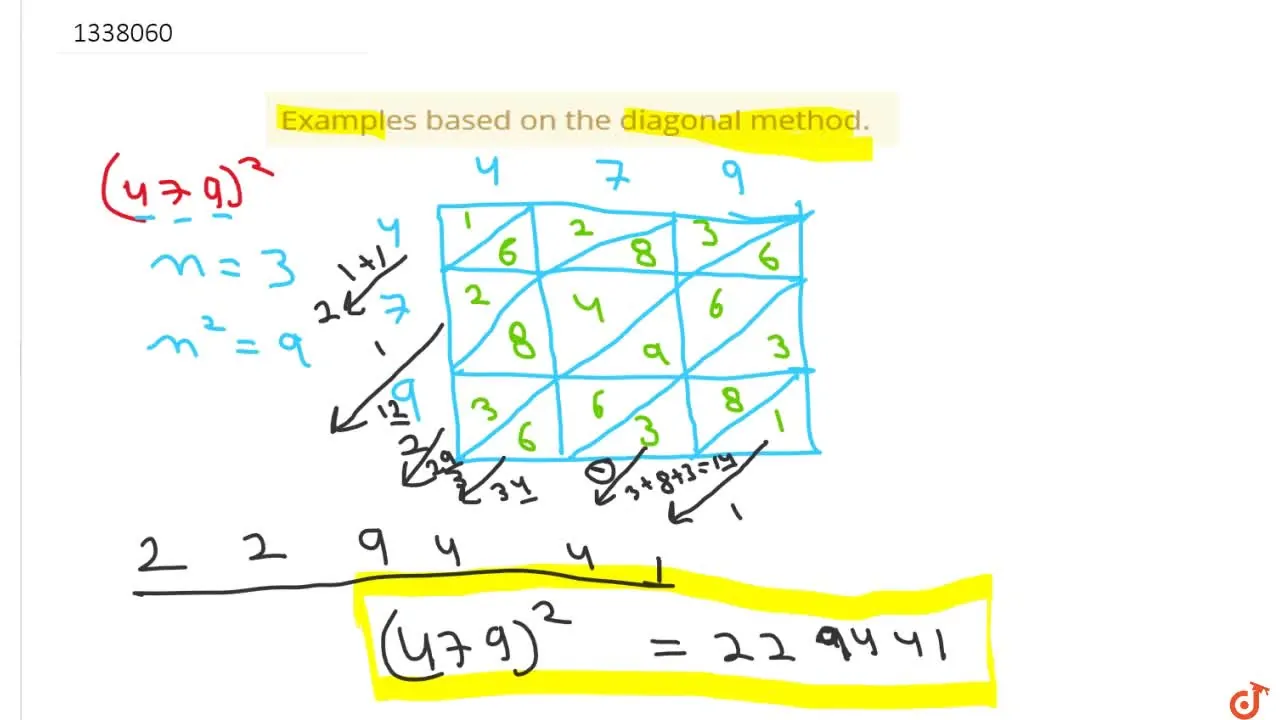 1338060
Examples based on the diagonal method.
(479)²
n = 3
n² = 9
4 7 9
4 7 9
1 6 2 8 3 6
2 8 4 9 6 3
3 6 6 3 8 1
1+1
2
1
12
2
29
3
34
3+8+3=14
1
2 2 9 4 4 1
(479)² = 229441